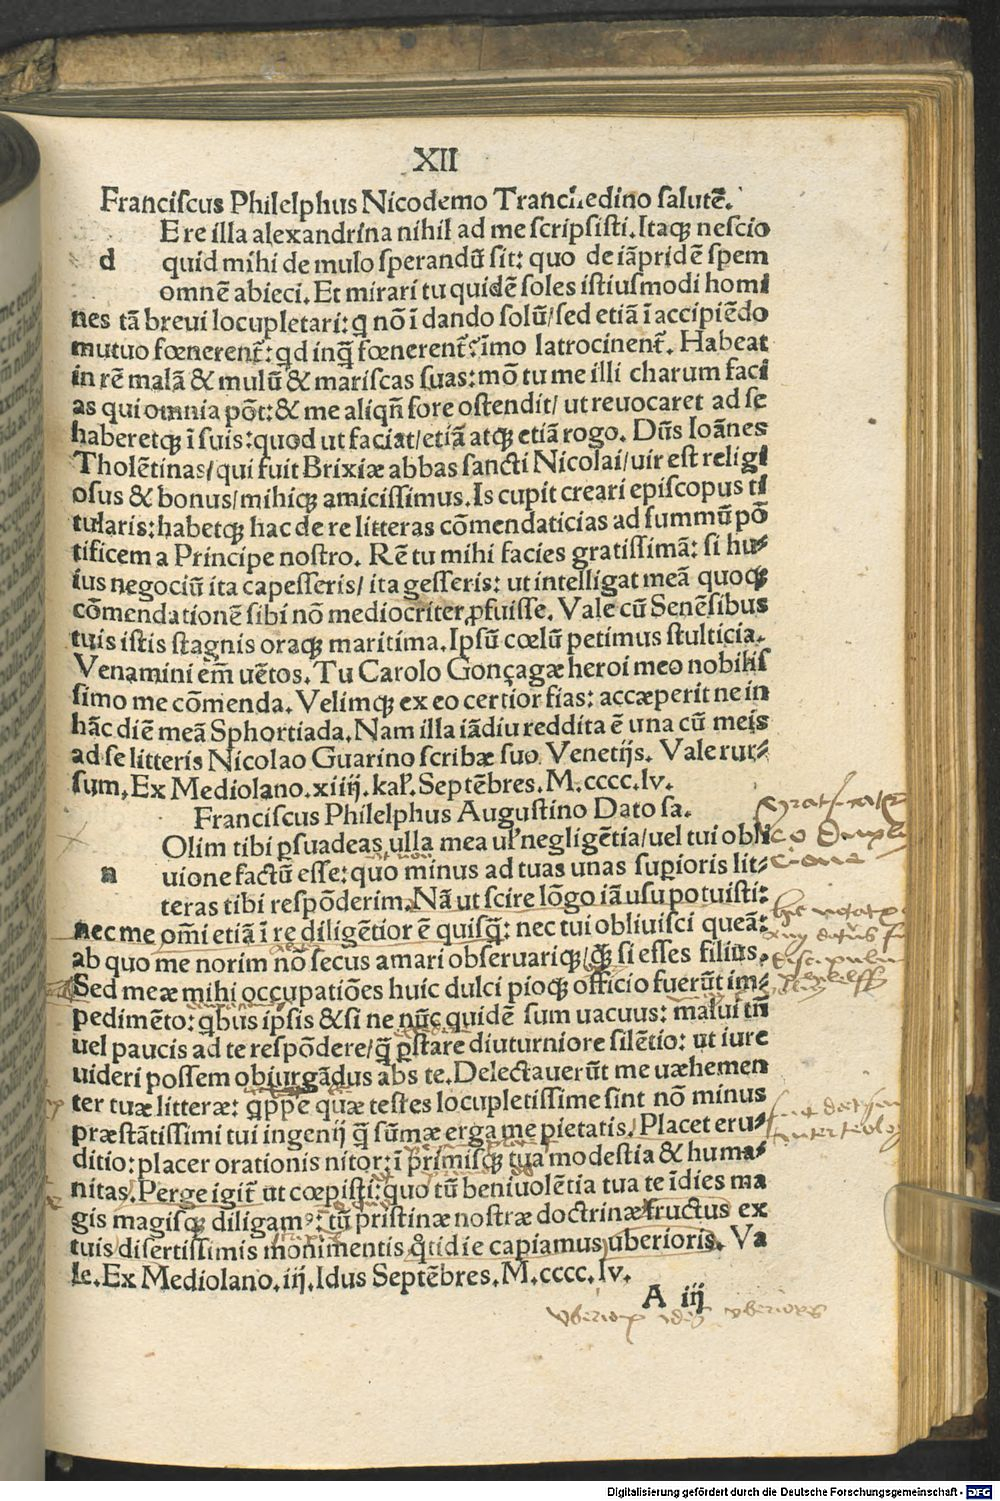 XII
Franciſcus Philelphus Nicodemo Tranchedino ſalutē.
E re illa alexandrina nihil ad me ſcripſiſti. Itaqꝫ neſcio
d quid mihi de mulo ſperandū ſit: quo de iāpridē ſpem
omnē abieci. Et mirari tu quidē ſoles iſtiuſmodi homi
nes tā breui locupletari: q nō ī dando ſolū/ſed etiā ī accipiēdo
mutuo fœnerent᷑: qd inq̄ fœnerent᷑? īmo latrocinent᷑. Habeat
in rē malā & mulū & mariſcas ſuas: mō tu me illi charum faci
as qui omnia pōt: & me aliqn̄ fore oſtendit/ ut reuocaret ad ſe
haberetqꝫ ī ſuis: quod ut faciat/etiā atqꝫ etiā rogo. Dn̄s Ioānes
Tholētinas/ qui fuit Brixiæ abbas ſancti Nicolai/uir eſt religi
oſus & bonus/mihiqꝫ amiciſſimus. Is cupit creari epiſcopus ti
tularis: habetqꝫ hac de re litteras cōmendaticias ad ſummū pō
tificem a Principe noſtro. Rē tu mihi facies gratiſſimā: ſi hu⸗
ius negociū ita capeſſeris/ ita geſſeris: ut intelligat meā quoqꝫ
cōmendationē ſibi nō mediocriter ꝓfuiſſe. Vale cū Senēſibus
tuis iſtis ſtagnis oraqꝫ maritima. Ipſū cœlū petimus ſtulticia.
Venamini em̄ uētos. Tu Carolo Gonçagæ heroi meo nobiliſ
ſimo me cōmenda. Velimqꝫ ex eo certior fias: accæperit ne in
hāc diē meā Sphortiada. Nam illa iādiu reddita ē una cū meis
ad ſe litteris Nicolao Guarino ſcribæ ſuo Venetijs. Vale rur⸗
ſum. Ex Mediolano. xiiij. kaƚ. Septēbres. M. cccc. lv.
Franciſcus Philelphus Auguſtino Dato ſa.
Olim tibi ꝑſuadeas ulla mea uƚ negligētia/uel tui obli
n uione factū eſſe: quo minus ad tuas unas ſuꝑioris lit⸗
teras tibi reſpōderim. Nā ut ſcire lōgo iā uſu potuiſti:
nec me om̄i etiā ī re diligētior ē quiſq̄: nec tui obliuiſci queā:
ab quo me norim nō ſecus amari obſeruariqꝫ/q̄ꝫ ſi eſſes filius.
Sed meæ mihi occupatiōes huic dulci pioqꝫ officio fuerūt im⸗
pedimēto: qbus ipſis & ſi ne nūc quidē ſum uacuus: malui tn̄
uel paucis ad te reſpōdere/q̄ ꝑſtare diuturniore ſilētio: ut iure
uideri poſſem obiurgādus abs te. Delectauerūt me uæhemen
ter tuæ litteræ: qppe quæ teſtes locupletiſſime ſint nō minus
præſtātiſſimi tui ingenij q̄ ſūmæ erga me pietatis. Placet eru⸗
ditio: placer orationis nitor: ī primiſqꝫ tua modeſtia & huma⸗
nitas. Perge igit᷑ ut cœpiſti: quo tū beniuolētia tua te īdies ma
gis magiſqꝫ diligamꝰ: tū priſtinæ noſtræ doctrinæ fructus ex
tuis diſertiſſimis monimentis qtidie capiamus uberioris. Va
le. Ex Mediolano. iij. Idus Septēbres. M. cccc. lv.
A iij
uberiores
Digitalisierung gefördert durch die Deutsche Forschungsgemeinschaft - DFG